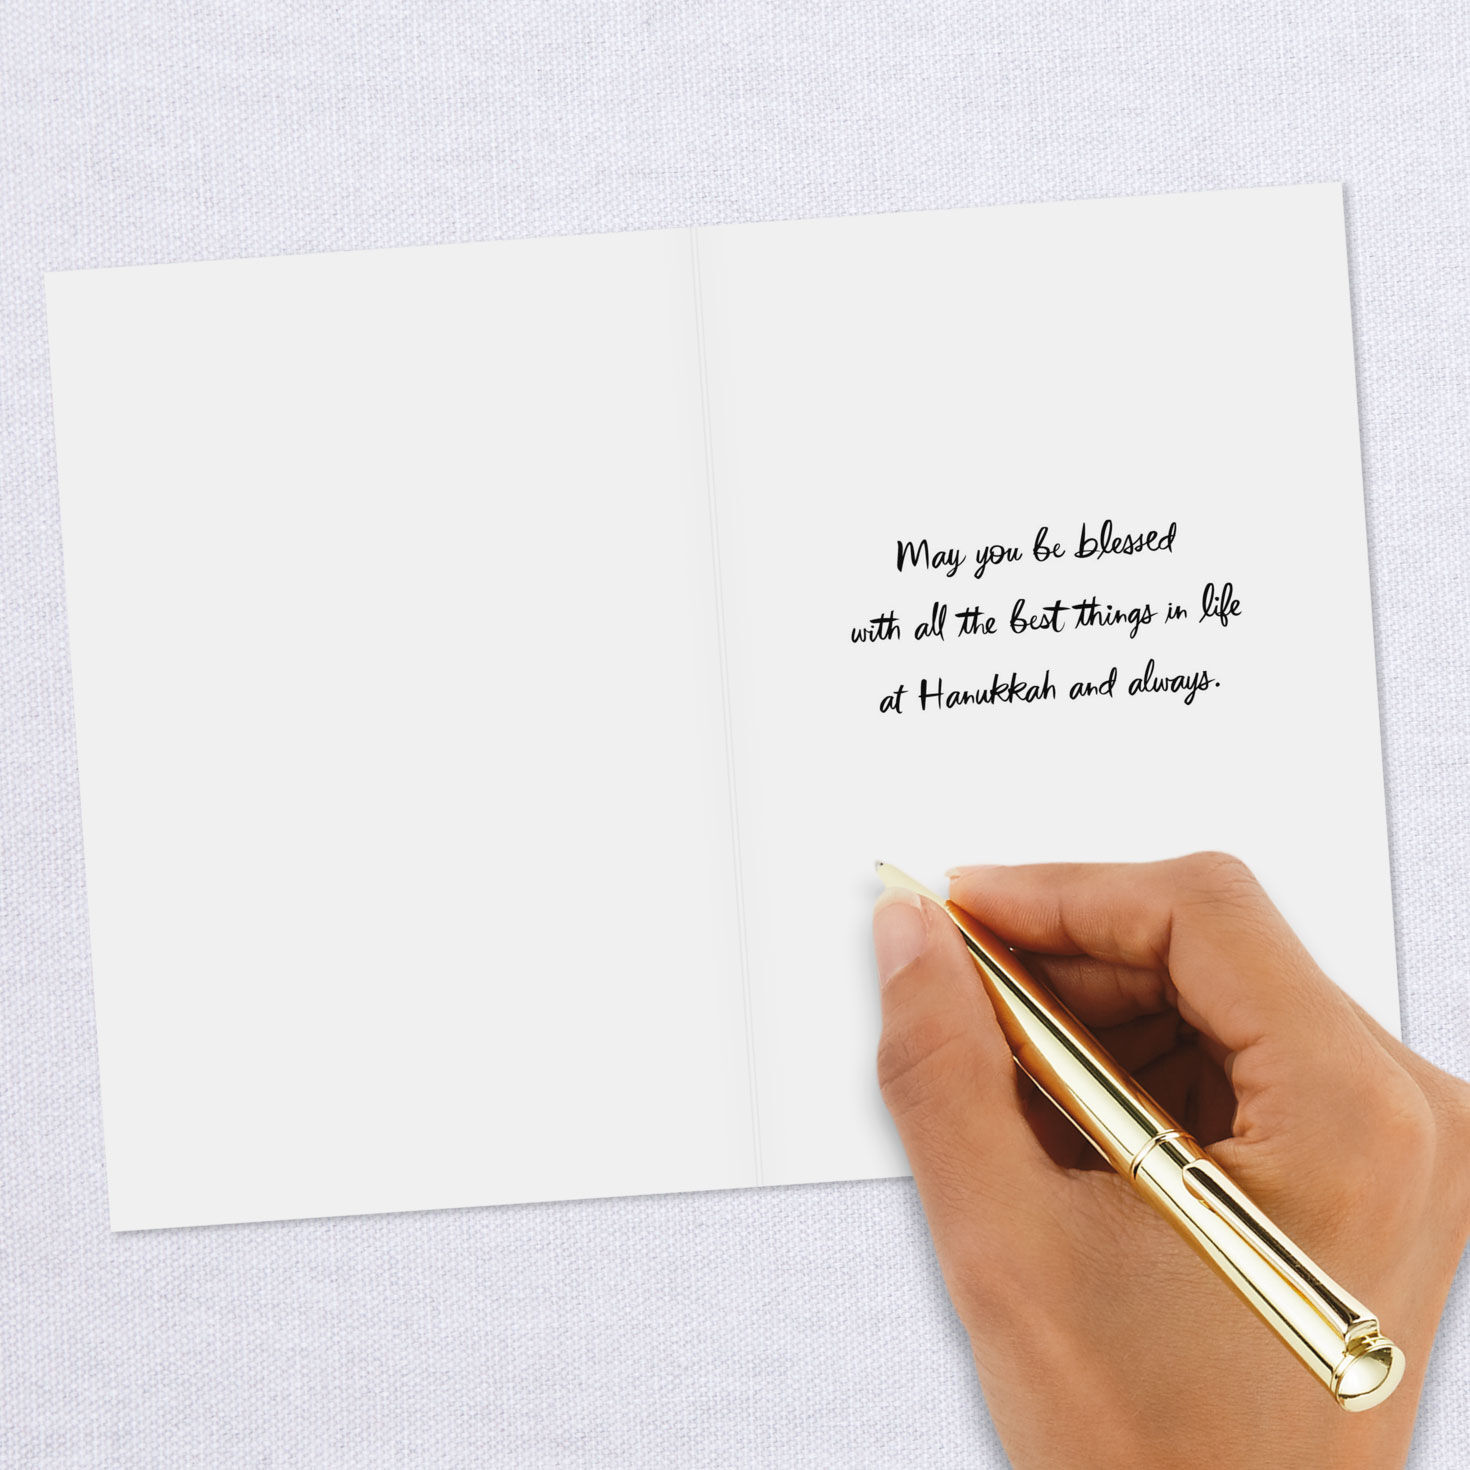 May you be blessed
with all the best things in life
at Hanukkah and always.